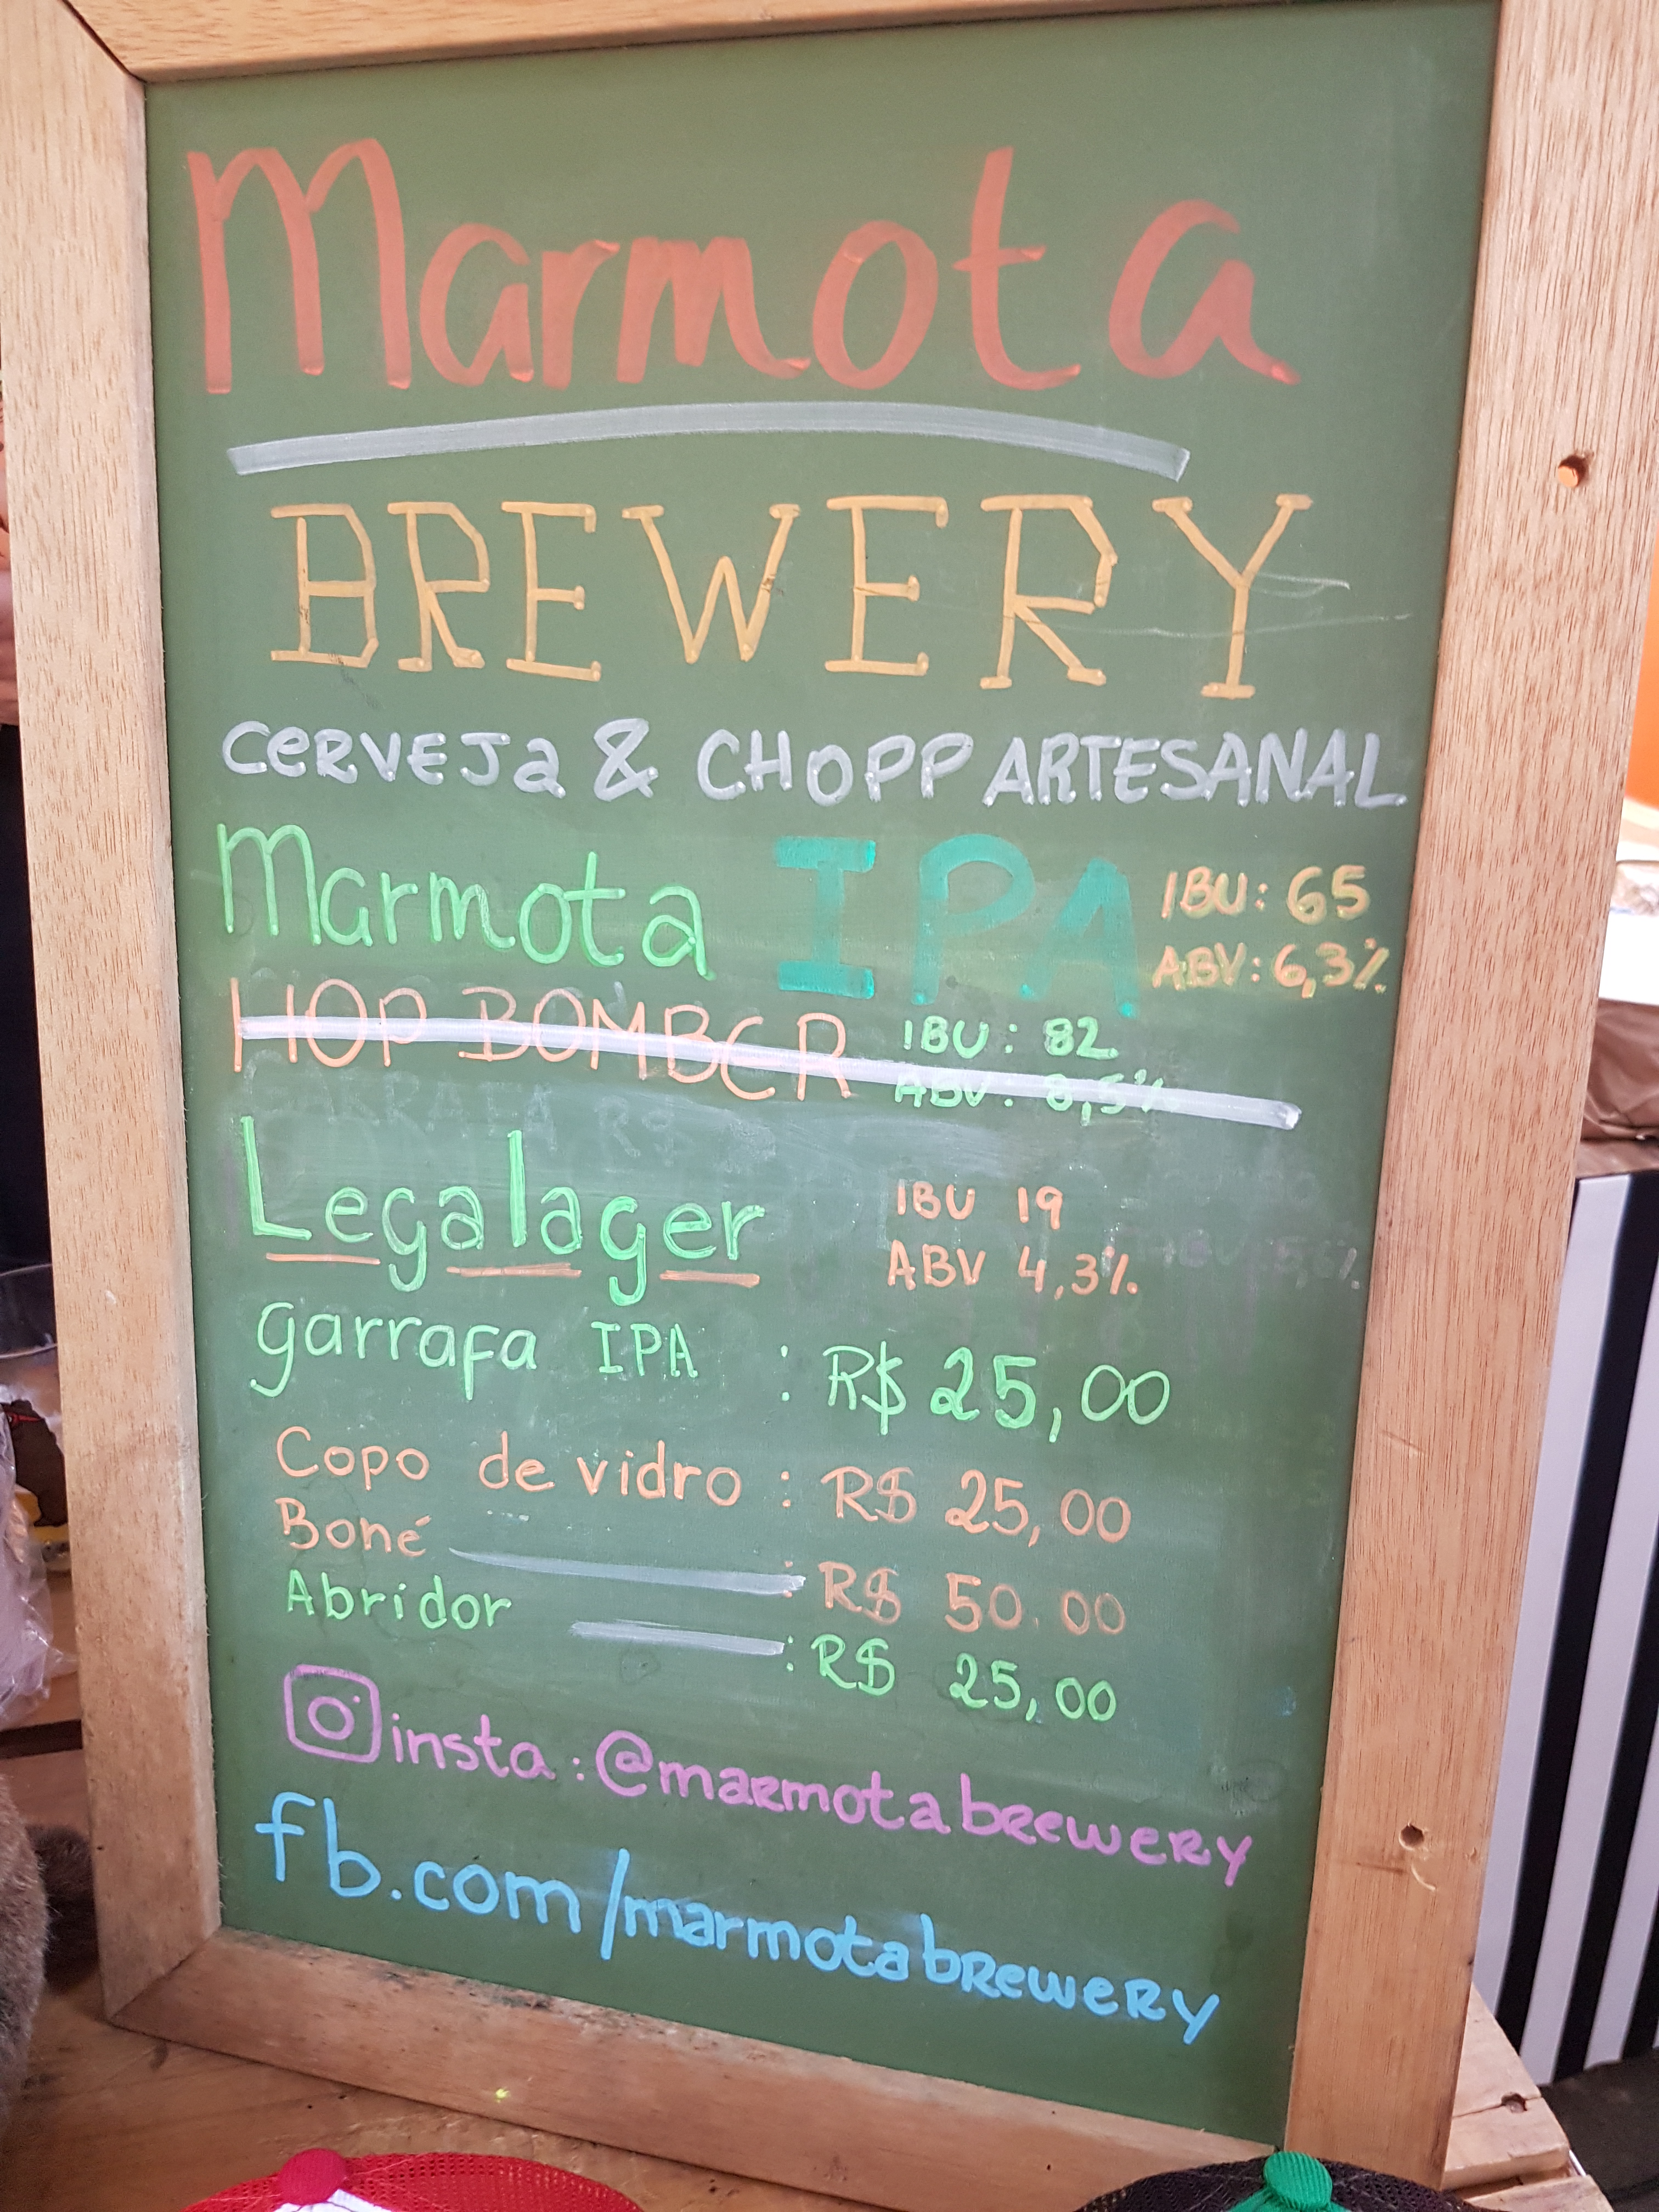 Marmota
BREWERY
CERVEJa & CHOPP ARTESANAL
Marmota IPA IBU: 65
ABV: 6,3%
HOP BOMBER IBU: 82
ABV: 8,5%
GARRAFA R$
Legalager IBU 19
ABV 4,3%
garrafa IPA : R$ 25,00
Copo de vidro : R$ 25,00
Boné : R$ 50.00
Abridor : R$ 25,00
insta: @marmotabrewery
fb.com/marmotabrewery